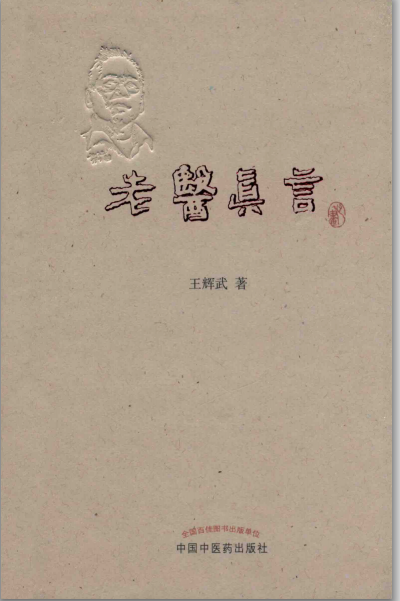 老醫眞言
王辉武 著
全国百佳图书出版单位
中国中医药出版社